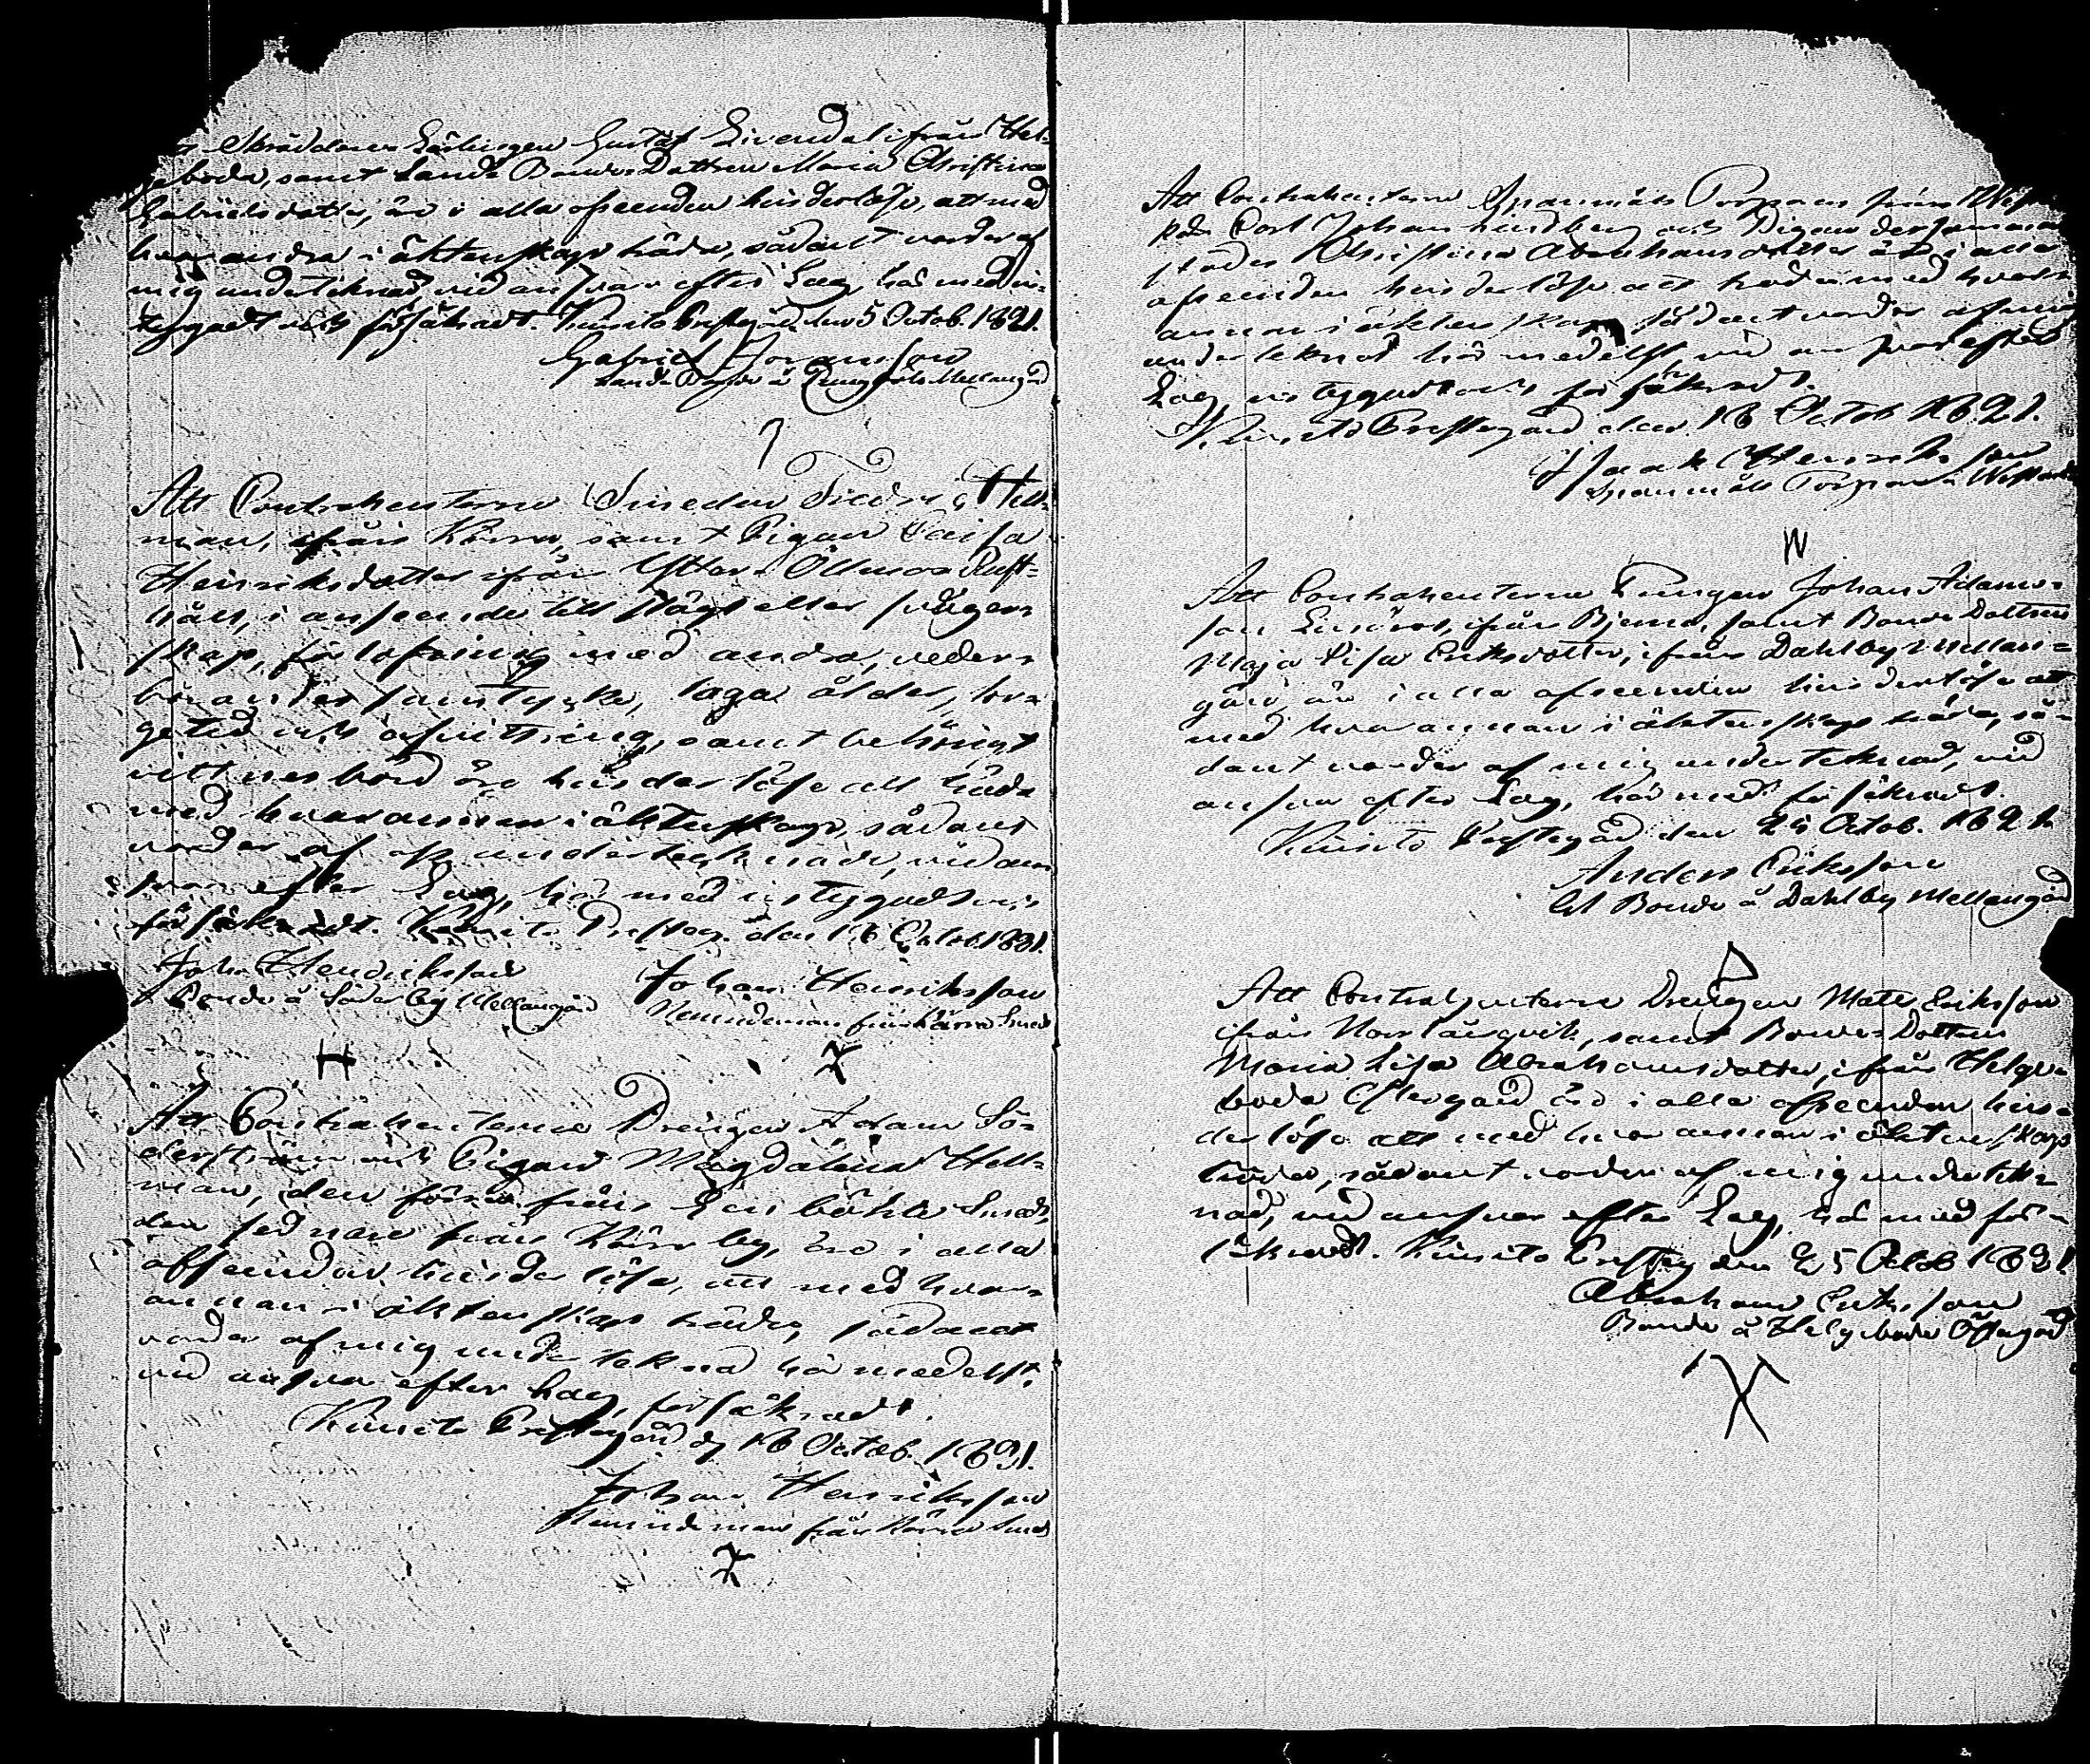 Skräddare Lärlingen Gustaf Sirendal ifrån Hel-
geboda, samt Landb Bonde Dottren Maria Christina
Gabrielsdotter, äro i alla afseenden hinderlöse, att med
hvarandra i äktenskap träda, sådant varder af
mig undertecknad vid ansvar efter Lag, här med in-
tygadt och försäkradt. Kimito Prestgård den 5 Octob. 1821.
Gabriel Joransson
Landb Bonde å Mellangård
Att Contrahenterne Smeden Fredric Hell-
man, ifrån Kärra, samt Pigan Caisa
Henriksdotter ifrån Ytter Ölmos Rust-
håll, i anseende till slägt eller svåger-
skap, förlofning med andra, veder-
börandes samtycke, laga ålder, sor-
getid och afvittring, samt behörigt
vittnesbörd äro hinderlöse att träda
med hvarannan i äktenskap, sådant
varder af oss undertecknade, vid an-
svar efter Lag, här med intygadt och
försäkradt. Kimito Prestg. den 16 Octob. 1821.
Joh. Hendricksson Johan Henriksson
Bonde å Söderby Mellangård Nemndeman från Kärra Smeds
H X
Att Contrahenterne Drengen Adam Sö-
derström och Pigan Magdalena Hell-
man, den förra från Smeds,
den sednare från Kärr by, äro i alla
afseenden hinderlöse, att med hvar-
annan i äktenskap träda, sådant
varder af mig undertecknad här medelst,
vid ansvar efter Lag, försäkradt.
Kimito Prestegård d 16 Octob. 1821.
Johan Henriksson
Nemndeman från Kärra Smeds
X
Att Contrahenterne Spanmåls Torparen från
Carl Johan Lindberg och Pigan dersamma
städes Christina Abrahamsdotter äro i alla
afseenden hinderlöse att träda med hvar-
annan i äktenskap, sådant varder af mig
undertecknad här medelst, vid ansvar efter
Lag, intygadt och försäkradt.
Kimito Prestegård den 16 Octob. 1821.
Isaak Henriksson
Spanmåls Torpare
N
Att Contrahenterne Drengen Johan Adams-
son ifrån Bjerno, samt Bonde Dottren
Maja Lisa Eriksdotter, ifrån Dahlby Mellan-
gård, äro i alla afseenden hinderlöse att
med hvarannan i äktenskap träda, så-
dant varder af mig undertecknad, vid
ansvar efter Lag, här med försäkradt.
Kimito Prestegård den 24 Octob. 1821.
Anders Eriksson
Bonde å Dahlby Mellangård
Att Contrahenterne Drengen Mats Eriksson
ifrån Norrlångvik, samt Bonde Dottren
Maria Lisa Abrahamsdotter, ifrån Helge-
boda Östergård äro i alla afseenden hin-
derlöse att med hvarannan i äktenskap
träda, sådant varder af mig underteck-
nad, vid ansvar efter Lag, här med för-
säkradt. Kimito Prestg den 25 Octob 1821.
Abraham Eriksson
Bonde å Helgeboda Östergård
X